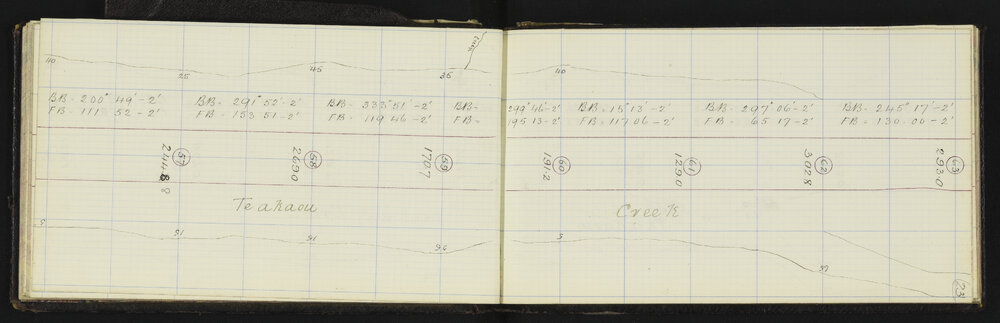 Creek
40
25
45
35
40
BB- 200° 49'-2' BB- 291° 52'-2' BB- 333° 51'-2' BB- 299° 46'-2' BB- 15° 13'-2' BB- 297° 06'-2' BB- 245° 17'-2'
FB- 111 52-2' FB- 153 51-2' FB- 119 46-2' FB- 195 13-2' FB- 117 06-2' FB- 65 17-2' FB- 130-00-2'
57 58 59 60 61 62 63
2448 2690 1707 1912 1290 3028 2930
Teakaou Creek
5
15
5
23